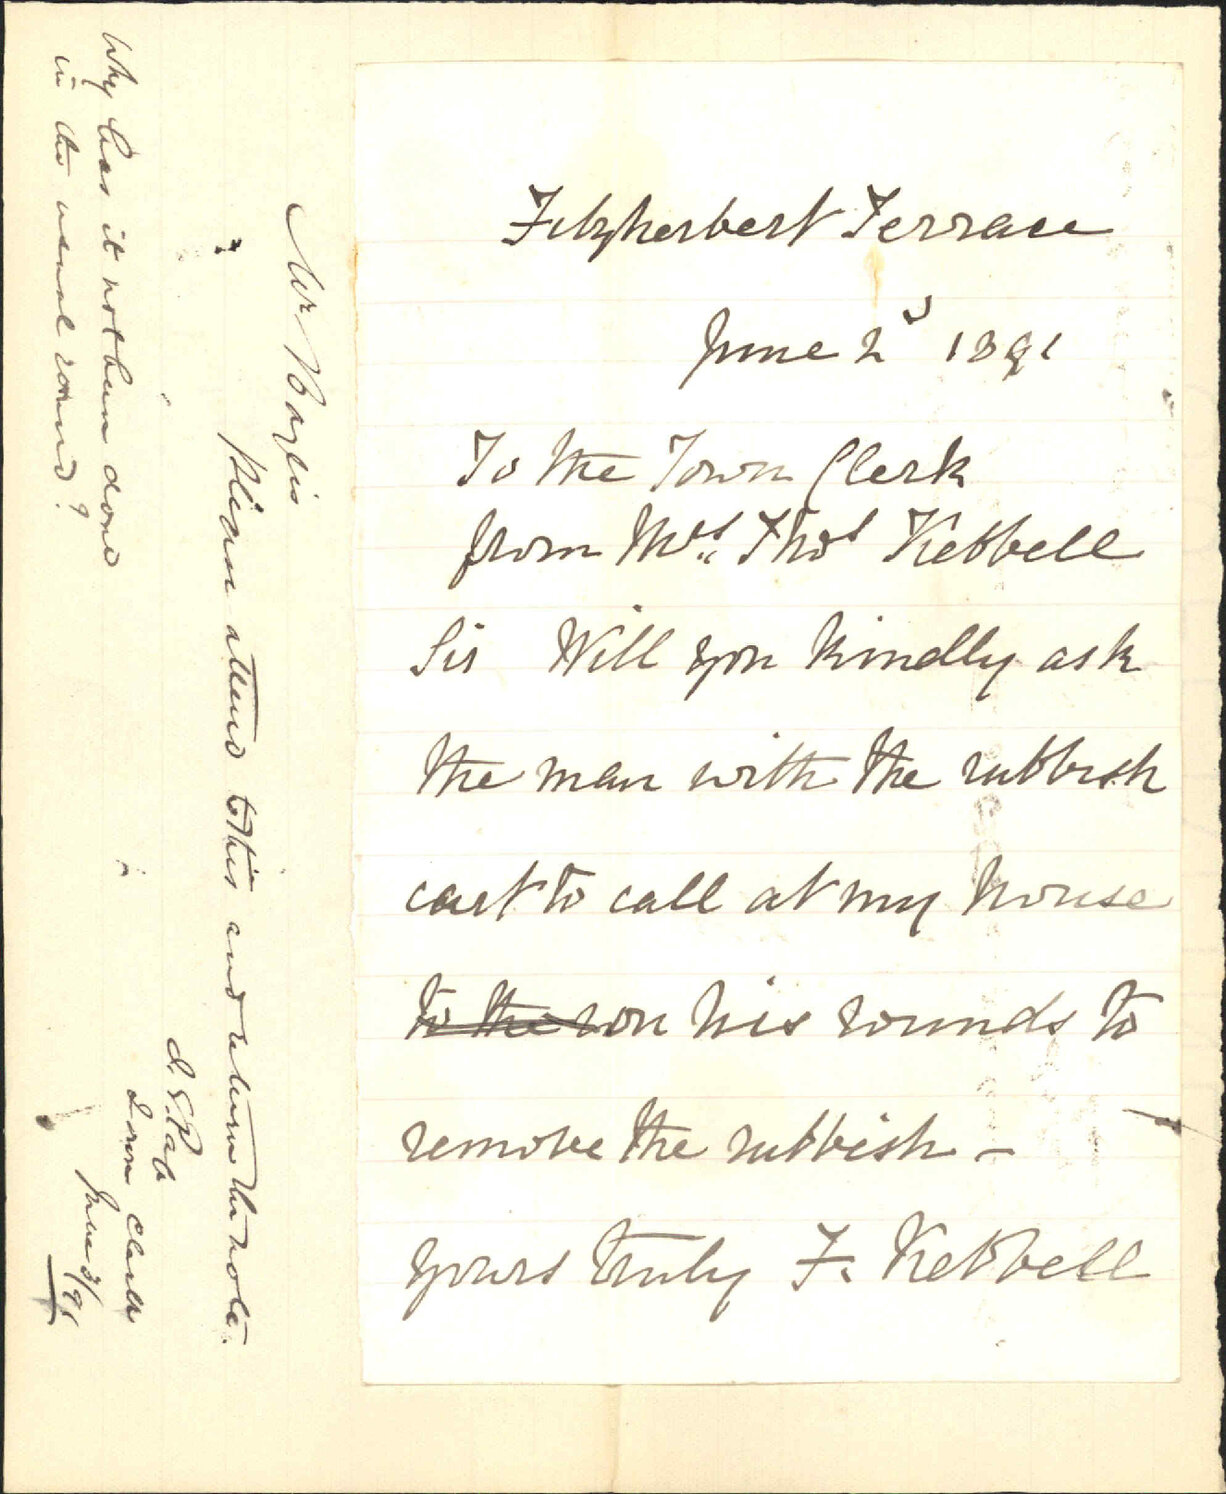 Fitzherbert Terrace
June 2d 1891
To the Town Clerk
from Mrs. Thos Kebbell
Sir Will you kindly ask
the man with the rubbish
cart to call at my house
to the on his rounds to
remove the rubbish –
yours truly F. Kebbell
Mr Baylis
Please attend to this and return the note.
Town Clerk
June 3/91
Why has it not been done
in the usual round?